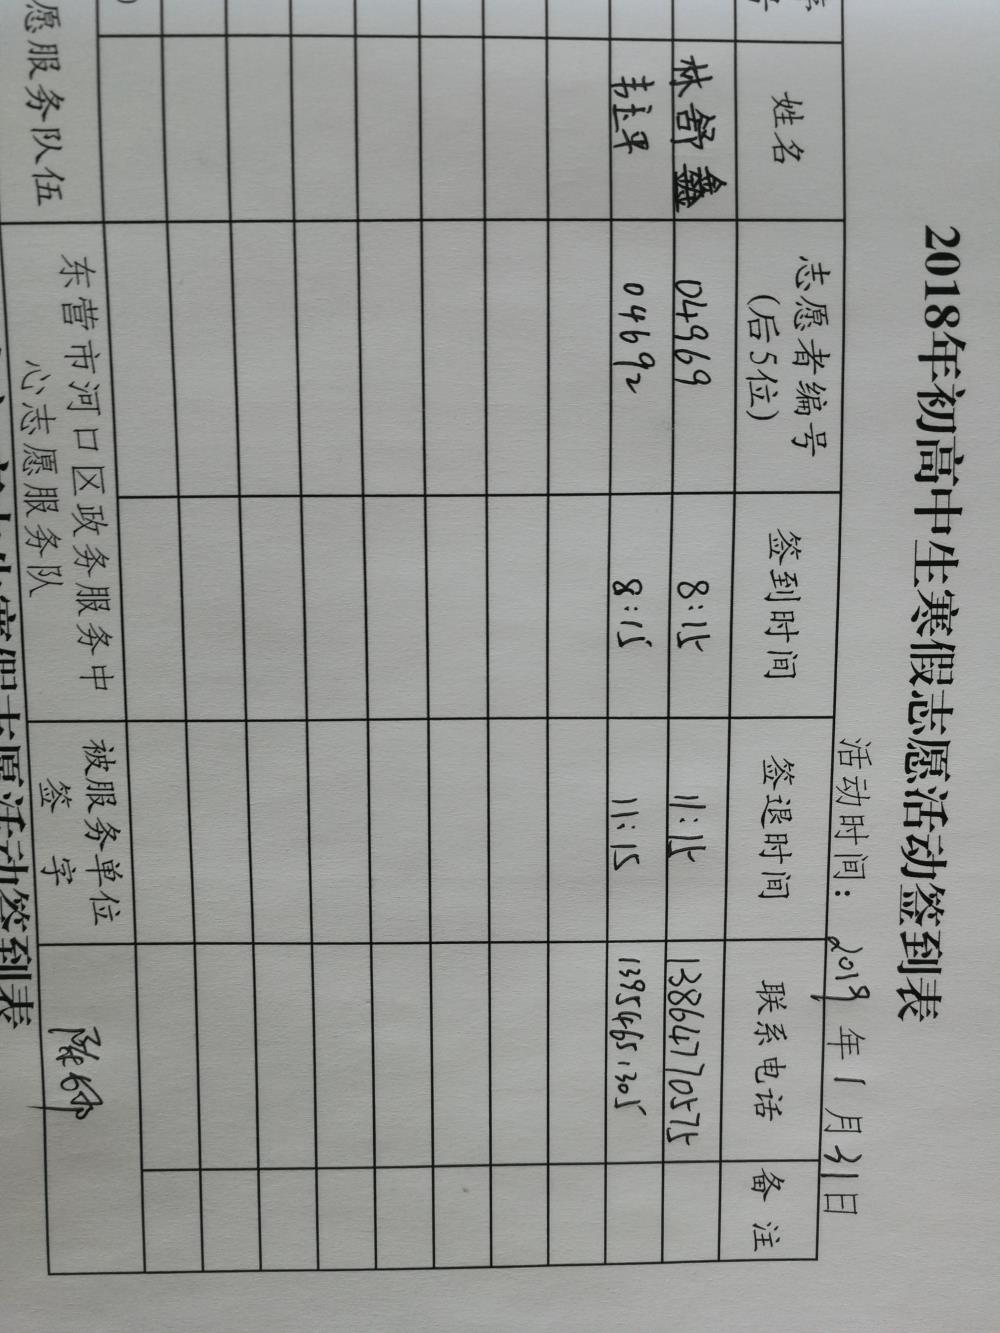 2018年初高中生寒假志愿活动签到表
活动时间：2019年1月31日
姓名 志愿者编号（后5位） 签到时间 签退时间 联系电话 备注
林舒鑫 04969 8:15 11:15 13864770575
韦玉平 04692 8:15 11:15 13954651305
愿服务队伍 东营市河口区政务服务中心志愿服务队 被服务单位签字